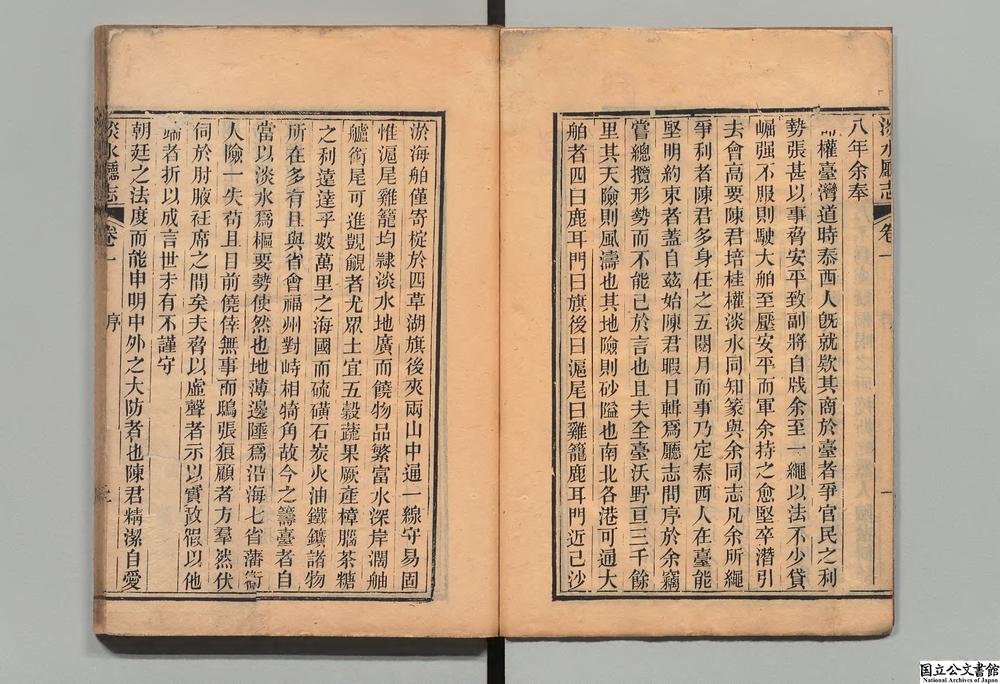 淡水廳志 卷一
八年余奉
命權臺灣道時泰西人旣就欵其商於臺者爭官民之利
勢張甚以事脅安平致副將自戕余至一繩以法不少貸
崛强不服則駛大舶至壓安平而軍余持之愈堅卒潛引
去會高要陳君培桂權淡水同知篆與余同志凡余所繩
爭利者陳君多身任之五閱月而事乃定泰西人在臺能
堅明約束者蓋自茲始陳君暇日輯爲廳志問序於余竊
嘗總攬形勢而不能已於言也且夫全臺沃野亘三千餘
里其天險則風濤也其地險則砂隘也南北各港可通大
舶者四曰鹿耳門曰旗後曰滬尾曰雞籠鹿耳門近己沙
淤海舶僅寄椗於四草湖旗後夾兩山中通一線守易固
惟滬尾雞籠均隸淡水地廣而饒物品繁富水深岸濶舳
艫銜尾可進覬覦者尤眾土宜五穀蔬果厥產樟腦茶糖
之利遠達乎數萬里之海國而硫磺石炭火油鐵鑛諸物
所在多有且與省會福州對峙相犄角故今之籌臺者自
當以淡水爲樞要勢使然也地薄邊陲爲沿海七省藩衞
人險一失苟且目前僥倖無事而鴟張狼顧者方羣然伏
伺於肘腋衽席之間矣夫脅以虛聲者示以實政假以他
端者折以成言世未有不謹守
朝廷之法度而能申明中外之大防者也陳君精潔自愛
淡水廳志 卷一 序